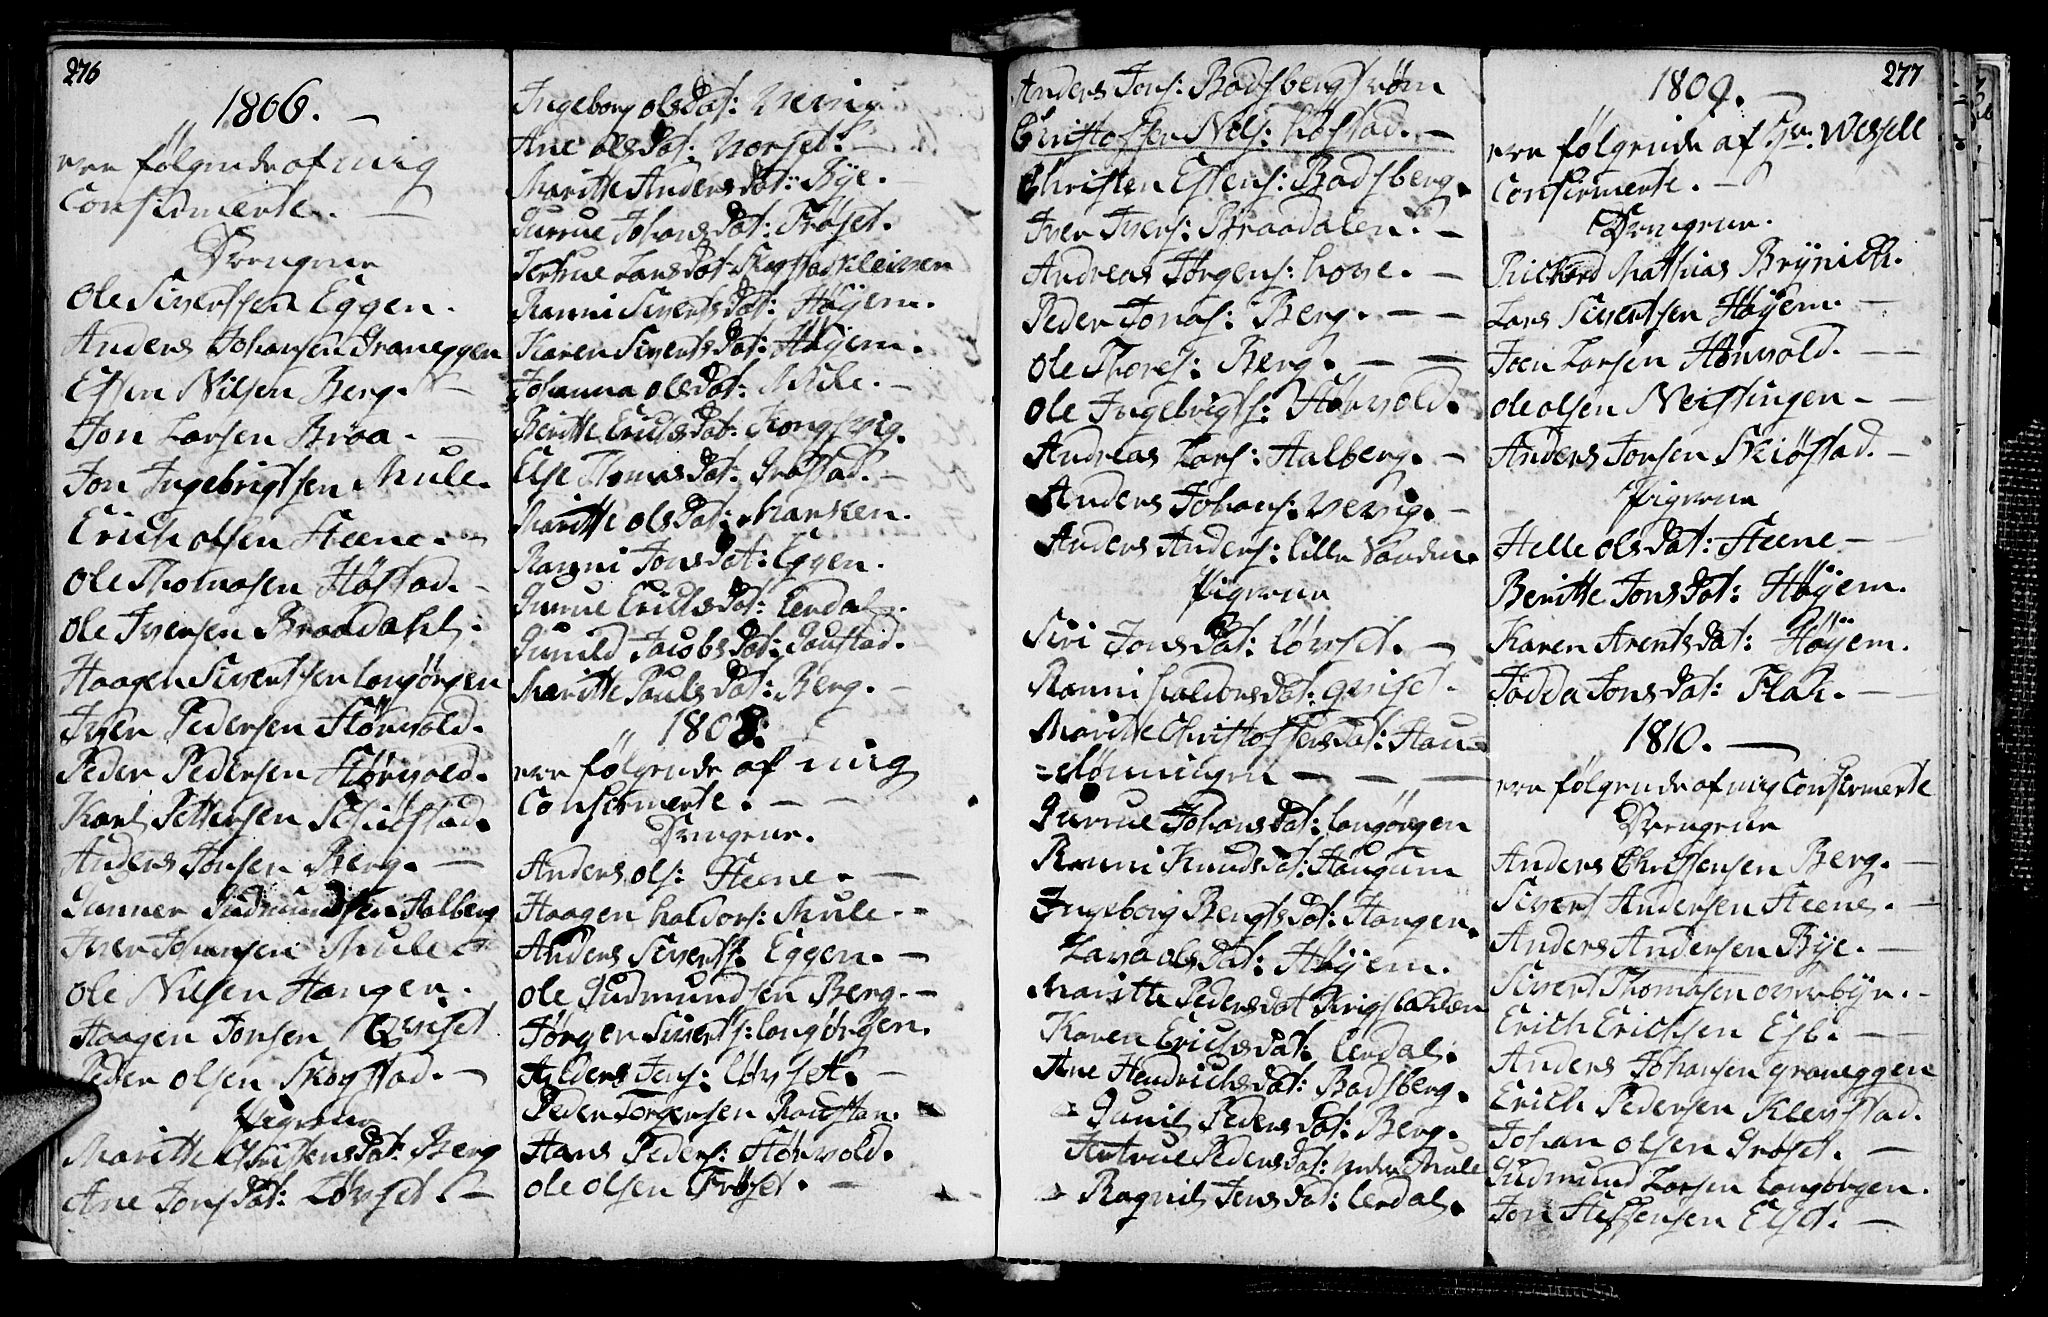 276
1806. —
ere følgende af mig
Confirmerte. —
Drengene
Ole Sivertsen Eggen.
Anders Johansen Graneggen
Esten Nilsen Berg. —
Jon Larsen Braa. —
Jon Ingebrigtsen Mule.
Erich olsen Steene. —
Ole Thomasen Høstad. —
Ole Iversen Braadahl.
Haagen Sivertsen Langørgen
Iver Pedersen Hørvold.
Peder Pedersen Hørvold.
Karl Pettersen Schiøstad.
Anders Jonsen Berg. —
Gunner Gudmundsen Aalberg
Iver Johansen Mule
Ole Nilsen Haugen.
Haagen Jonsen Qviset
Peder olsen Skogstad. —
Pigerne
Maritte Christensdat: Berg
Ane Jonsdat: Løvset. —
Ingeborg olsdat: Vevig
Ane olsdat: Norset. —
Maritte Andersdat: Bÿe. —
Gurrue Johansdat: Frøset.
Kertrue Larsdat: Skogstadkleiven
Ranni Sivertsdat: Høyem.
Karen Sivertsdat: Høyem.
Johanna olsdat: Mule. —
Beritte Erichsdat: Kongsvig.
Else Thomasdat: Grøstad. —
Maritte olsdat: Marken.
Ranni Jonsdat: Eggen.
Gurrue Erichsdat: Lerdal.
Gunild Jacobsdat: Gaustad.
Maritte Paulsdat: Berg. —
1808.
ere følgende af mig
Confirmerte. — —
Drengene.
Anders ols: Steene. —
Haagen Haldors: Mule. —
Anders Siverts: Eggen. —
Ole Gudmundsen Berg. —
Jørgen Siverts: Langørgen.
Anders Jens: Løvset. —
Peder Torgersen Ragstan.
Hans Peders: Hørvold.
Ole olsen Frøset. —
Anders Jons: Bodsbergstrøm
Christoffer Nils: Høstad. —
Christen Estens: Bodsberg.
Iver Ivers: Braadalen. —
Andreas Jørgens: Hove. —
Peder Jonas: Berg. — —
Ole Thores: Berg. — —
Ole Ingebrigts: Hørvold.
Andreas Lars: Aalberg. —
Anders Johans: Vevig. —
Anders Anders: Lille
Pigerne
Siri Jonsdat: Løvset. —
Ranni Haldorsdat: Qviset.
Maritte Christoffersdat: Hau-
=dønningen — — —
Gurrue Johansdat: Langørgen
Ranni Knudsdat: Haugum
Ingeborg Bengtsdat: Haugen.
Lava olsdat: Høyem.
Maritte Pedersdat
Karen Erichsdat: Lerdal.
Ane Hendrichsdat: Bodsberg.
Gunil Pedersdat: Berg.
Antrue Pedersdat: nedre Mule
Ragnil Jensdat: Lerdal.
277
1809. —
ere følgende af Hr: Wessell
Confirmerte. —
Drengene.
Richard Mathias Brÿnich.
Lars Sivertsen Høyem. —
Joen Larsen Hørvold. —
Ole olsen Neistingen — —
Anders Jonsen Skiøstad. —
Pigerne
Helle olsdat: Steene —
Beritte Jonsdat: Høyem.
Karen Arentsdat: Høyem.
Jodda Jonsdat: Flah. —
1810. —
ere følgende af mig Confirmerte
Drengene
Anders Christensen Berg. —
Sivert Andersen Steene. —
Anders Andersen Bÿe. —
Sivert Thomasen overbÿe. —
Erich Erichsen Esb. —
Anders Johansen Graneggen
Erich Pedersen Klevstad.
Johan olsen Grøset. —
Gudmund Larsen Langørgen.
Jon Steffensen Elset. —